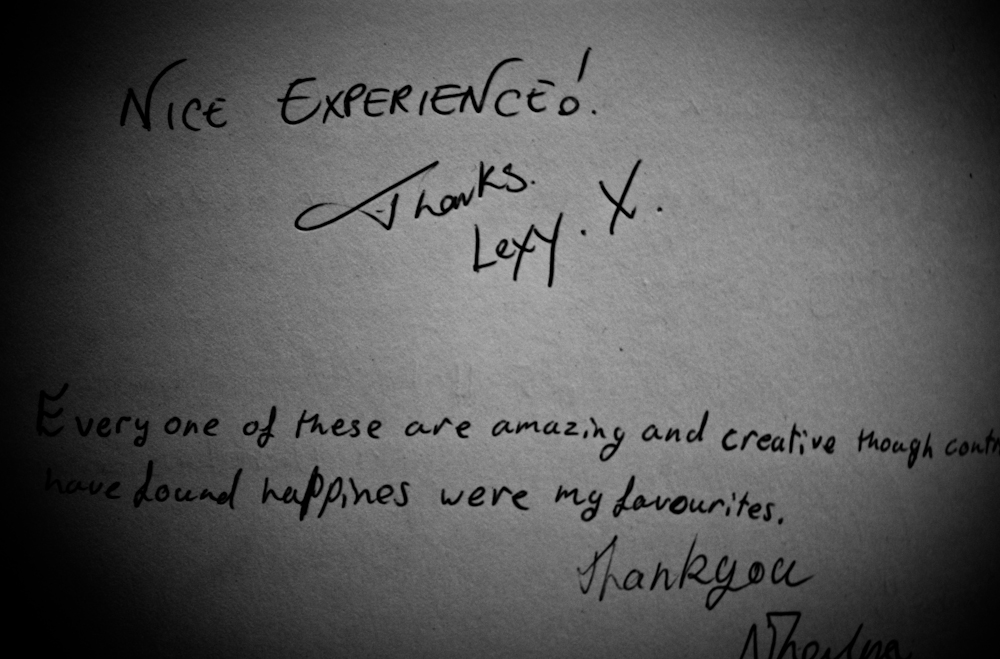 NICE EXPERIENCE!
Thanks.
Lexy. X.
Every one of these are amazing and creative though
have found happines were my favourites.
Thankyou